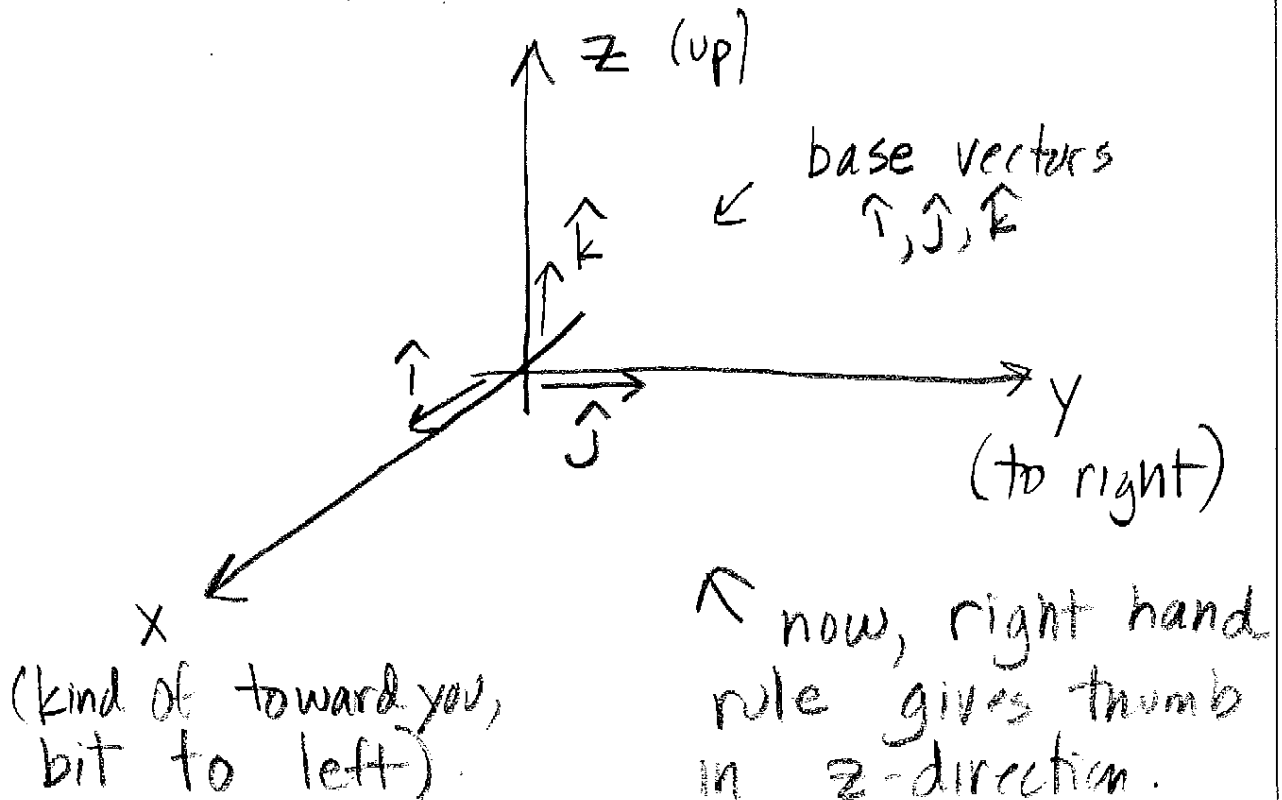 z (up)
base vectors
î, ĵ, k̂
k̂
î
ĵ
y
(to right)
x
(kind of toward you,
bit to left)
now, right hand
rule gives thumb
in z-direction.